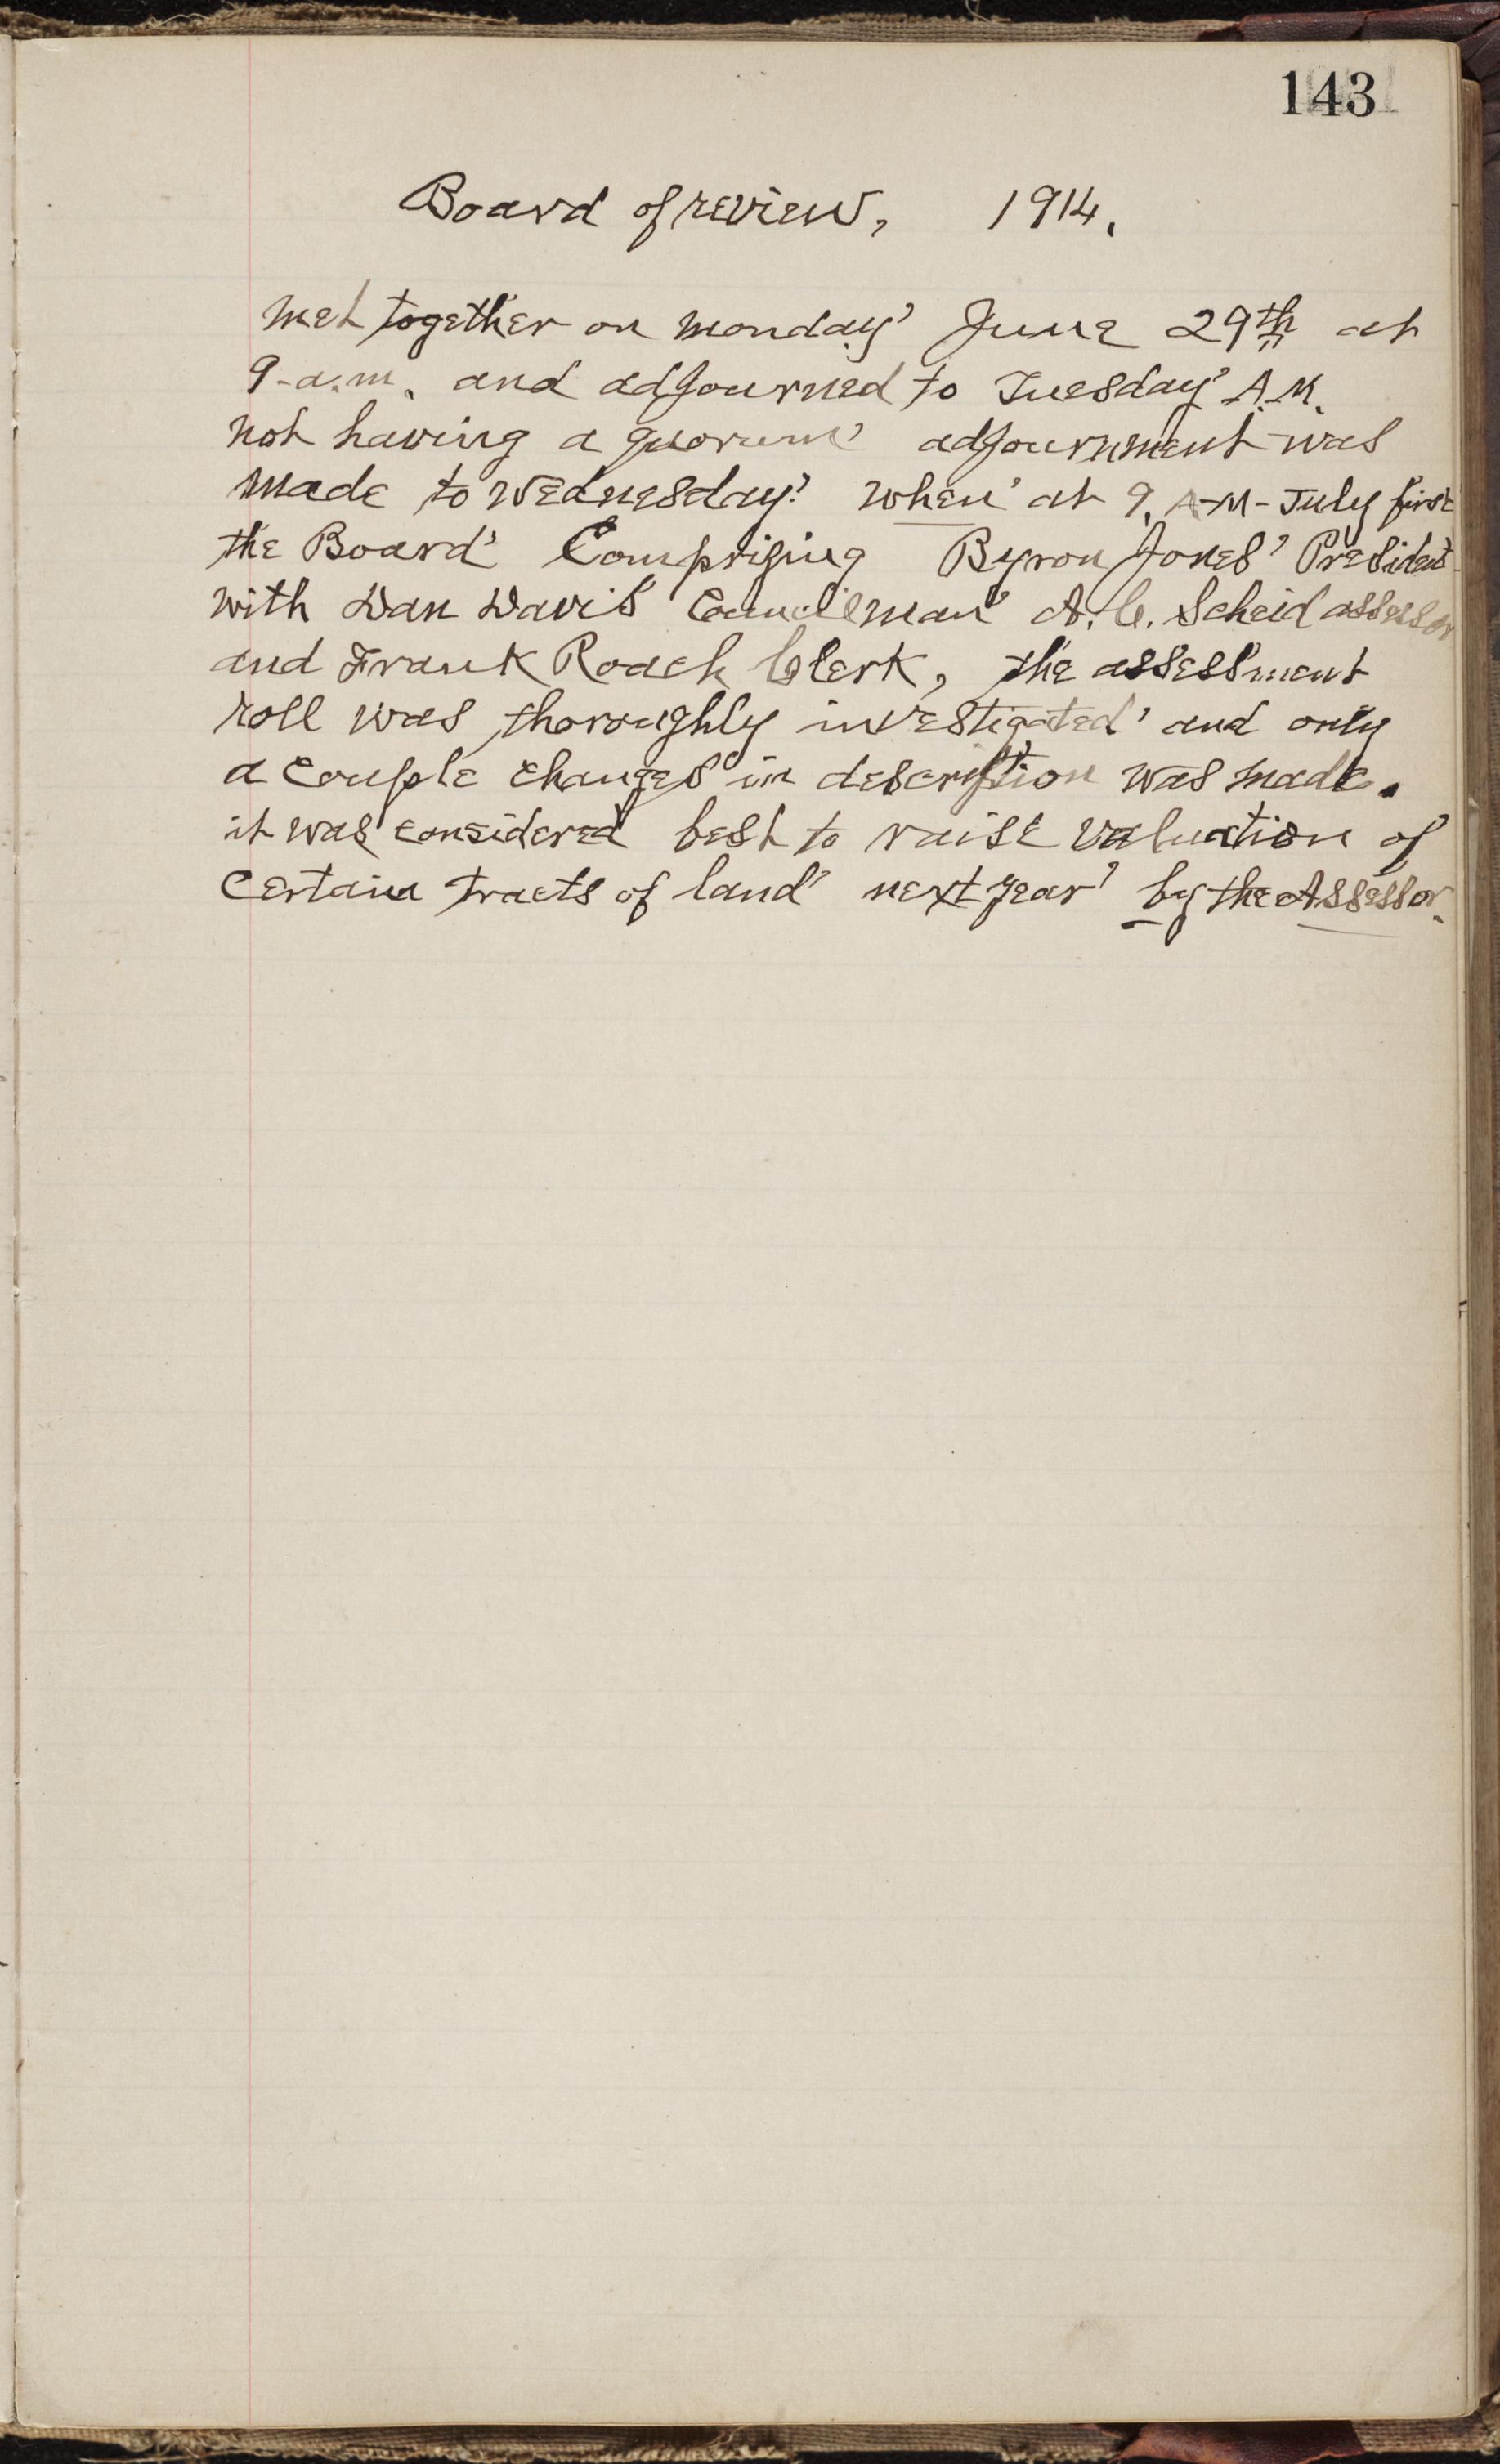 143
Board of review, 1914.
met together on monday' June 29th at
9-a.m. and adjourned to Tuesday' A.M.
not having a quorum' adjournment was
made to Wednesday' when' at 9. A-M-July first
the Board' Comprising Byron Jones' President
with Dan Davis' Councilman' A. C. Scheid assessor
and Frank Roach Clerk, the assessment
roll was thoroughly investigated' and only
a couple changes in description was made.
it was considered best to raise valuation of
Certain tracts of land' next year' by the Assessor.